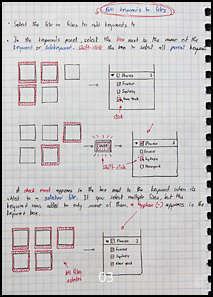 Add keywords to files
• Select the file or files to add keywords to
• In the keywords panel, select the box next to the name of the
keyword or subkeyword. Shift-click the box to select all parent keywords
Places
France
Sydney
New York
click
SHIFT
Places
France
Sydney
New york
Shift-click
A check mark appears in the box next to the keyword when it's
added to a selected file. If you select multiple files, but the
keyword was added to only some of them, a hyphen (-) appears in the
keyword box.
Places
France
Sydney
New york
All files
selected
03